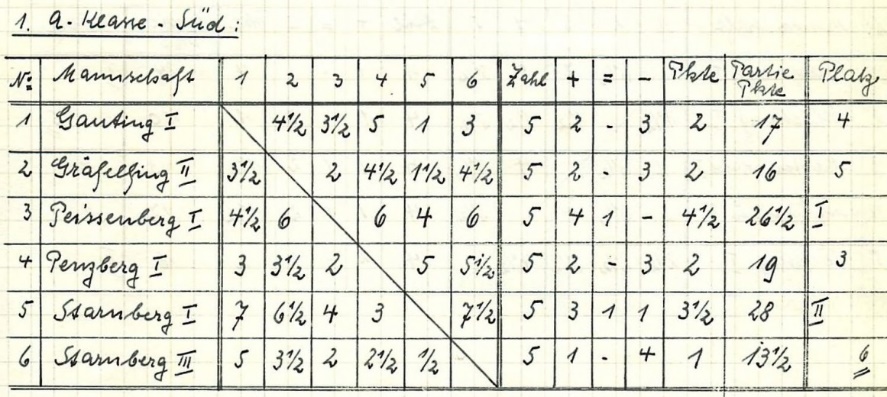 1. A-Klasse-Süd:
No Mannschaft 1 2 3 4 5 6 Zahl + = - Pkte Partie Pkte Platz
1 Gauting I 4 1/2 3 1/2 5 1 3 5 2 - 3 2 17 4
2 Gräfelfing II 3 1/2 2 4 1/2 1 1/2 4 1/2 5 2 - 3 2 16 5
3 Peissenberg I 4 1/2 6 6 4 6 5 4 1 - 4 1/2 26 1/2 I
4 Penzberg I 3 3 1/2 2 5 5 1/2 5 2 - 3 2 19 3
5 Starnberg I 7 6 1/2 4 3 7 1/2 5 3 1 1 3 1/2 28 II
6 Starnberg III 5 3 1/2 2 2 1/2 1/2 5 1 - 4 1 13 1/2 6